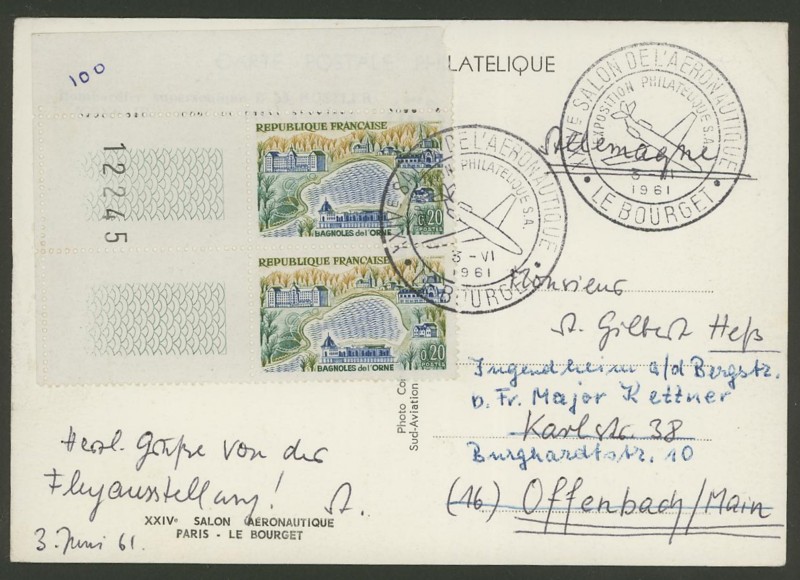 100
LATELIQUE
XXIVe SALON DE L'AERONAUTIQUE
EXPOSITION PHILATELIQUE S.A.
3-VI
1961
• LE BOURGET •
Allemagne
12245
REPUBLIQUE FRANÇAISE
BAGNOLES de l'ORNE
0,20
POSTES
DE L'AERONAUTIQUE
PHILATELIQUE S.A.
3-VI
1961
BOURGET
REPUBLIQUE FRANÇAISE
BAGNOLES de l'ORNE
0,20
POSTES
Monsieur
St. Gilbert Heß
Jugendheim a/d Bergstr.
b. Fr. Major Kettner
Karlstr. 38
Burghardtstr. 10
(16) Offenbach/Main
Photo
Sud-Aviation
Herzl. Grüße von der
Flugausstellung! St.
3. Juni 61.
XXIVe SALON AÉRONAUTIQUE
PARIS - LE BOURGET